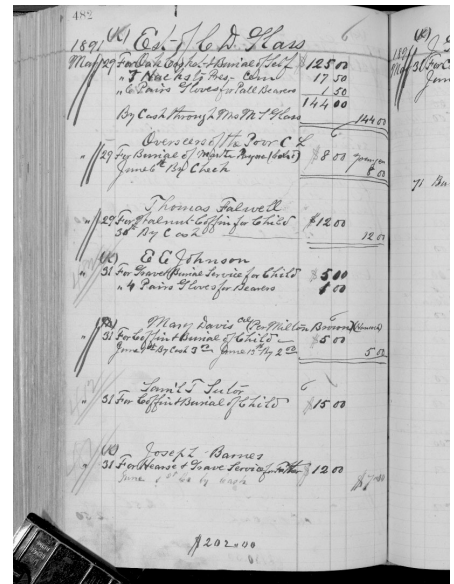 482
(K) Est. of C D Glass 6
1891
May 29 For Oak Casket & Burial of Self $125 00
" 7 Hacks to Pres- Cem 17 50
" 6 Pairs Gloves for Pall Bearers 1 50
144 00
By Cash through Mrs M S Glass 144 00
Overseers of the Poor C L 6
" 29 For Burial of Martha Payne $8 00
June 6th By Check 8 00
Thomas Falwell
" 29 For Walnut Coffin for Child $12 00
30th By Cash 12 00
(K) E C Johnson
" 31 For Grave & Burial Service for Child $5 00
" 4 Pairs Gloves for Bearers 1 00
Mary Davis col (Per Milton Brown) 6
" 31 For Coffin & Burial of Child $5 00
June By Cash 3 00 June 13th By 2 00 5 00
Sam'l T Suter 6
" 31 For Coffin & Burial of Child $15 00
(K) Joseph Barnes
" 31 For Hearse & Grave Service for $12 00
June by cash
$202.00